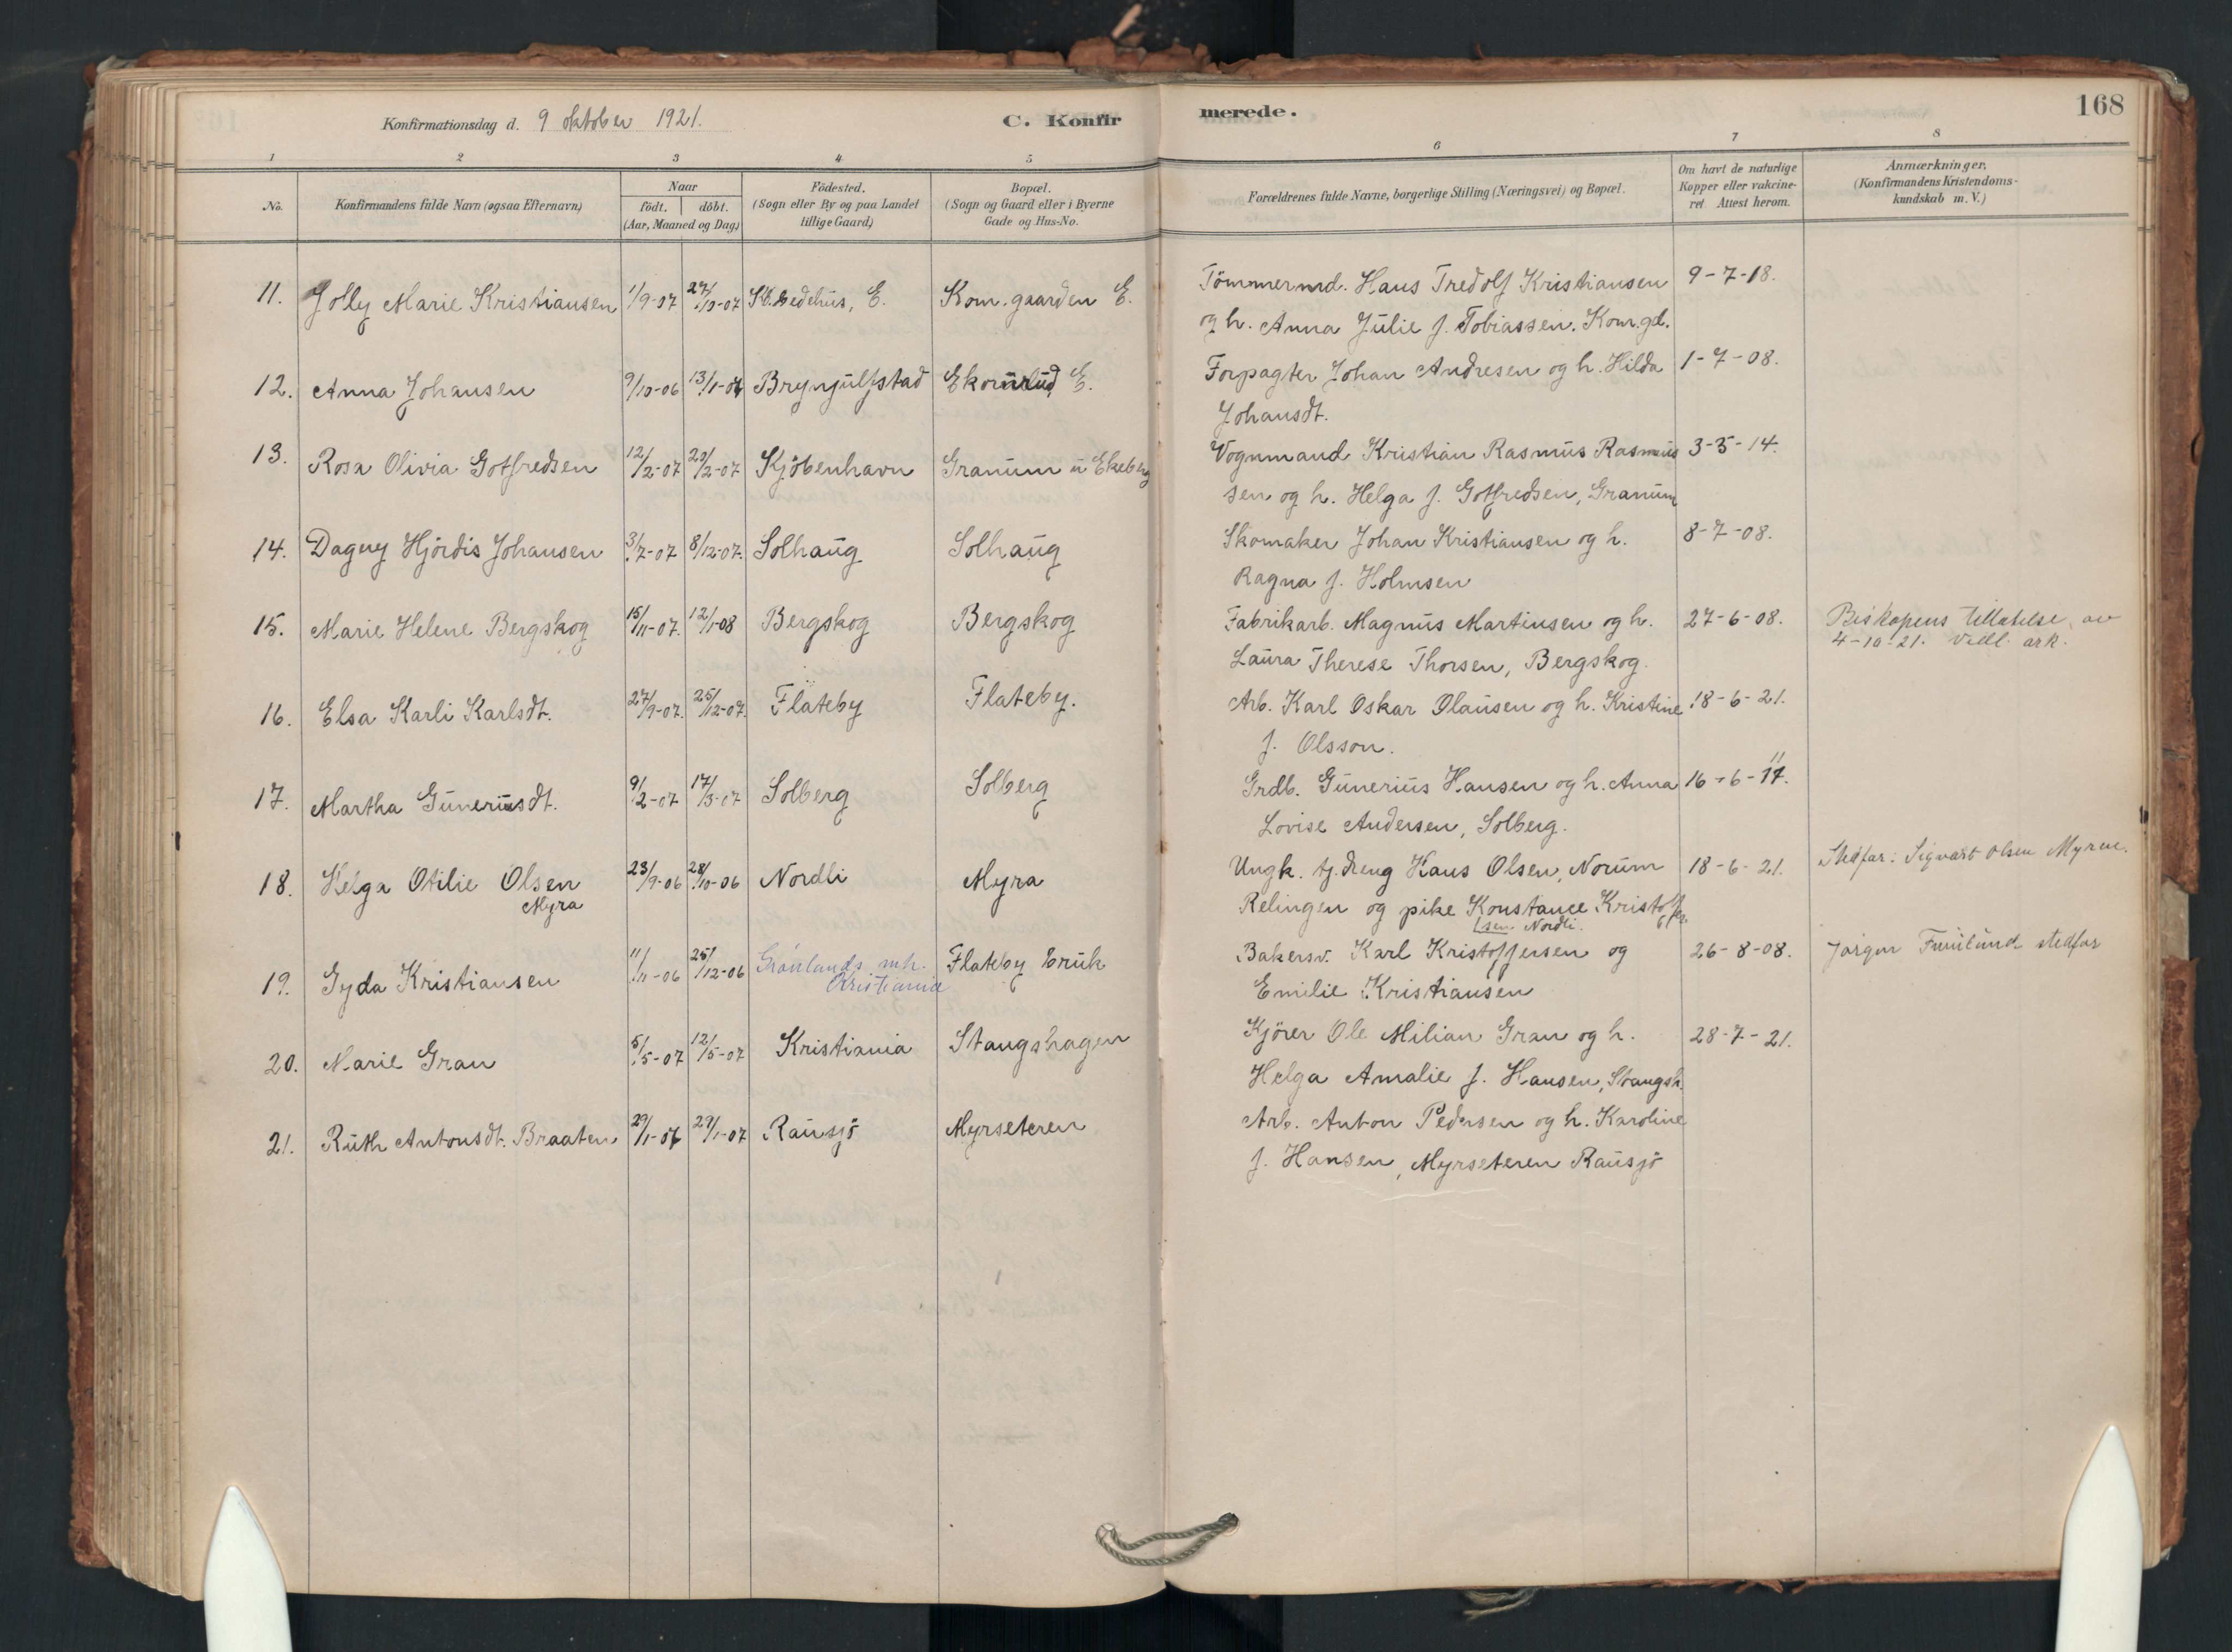 Konfirmationsdag d. 9 oktober 1921.
C. Konfirmerede.
168
1 2 3 4 5 6 7 8
No.
Konfirmandens fulde Navn (ogsaa Efternavn)
Naar
födt. döbt.
(Aar, Maaned og Dag)
Födested.
(Sogn eller By og paa Landet
tillige Gaard)
Bopæl.
(Sogn og Gaard eller i Byerne
Gade og Hus-No.
Forældrenes fulde Navne, borgerlige Stilling (Næringsvei) og Bopæl.
Om havt de naturlige
Kopper eller vakcine-
ret. Attest herom.
Anmærkninger,
(Konfirmandens Kristendoms-
kundskab m. V.)
11. Jolly Marie Kristiansen 1/9-07 27/10-07 Bedehus, E. Kom. gaarden E. Tömmermd. Hans Fredolf Kristiansen 9-7-18.
og h. Anna Julie f. Tobiassen. Kom.gd.
12. Anna Johansen 9/10-06 13/1-07 Brynjulfstad Ekornrud E. Forpagter Johan Andresen og h. Hilda 1-7-08.
Johansdt.
13. Rosa Olivia Gotfredsen 12/2-07 20/2-07 Kjöbenhavn Granum u Ekeberg Vognmand Kristian Rasmus Rasmus 3-5-14.
sen og h. Helga f. Gotfredsen, Granum
14. Dagny Hjördis Johansen 3/7-07 8/12-07. Solhaug Solhaug Skomaker Johan Kristiansen og h. 8-7-08.
Ragna f. Holmsen
15. Marie Helene Bergskog 15/11-07. 12/1-08 Bergskog Bergskog Fabrikarb. Magnus Martinsen og h. 27-6-08. Biskopens tillatelse av
4-10-21. vedl. ark.
Laura Therese Thorsen, Bergskog.
16. Elsa Karli Karlsdt. 27/9-07. 25/12-07. Flateby Flateby. Arb. Karl Oskar Olausen og h. Kristine 18-6-21.
f. Olsson.
17. Martha Guneriusdt. 9/2-07 17/3-07 Solberg Solberg Grdb. Gunerius Hansen og h. Anna 16-6-11.
Lovise Andersen, Solberg.
18. Helga Otilie Olsen 23/9-06 28/10-06 Nordli Myra Ungk. tj.dreng Hans Olsen, Norum 18-6-21. Stedfar: Sigvart Olsen Myrene.
Myra
Relingen og pike Konstance Kristoffer
sen Nordli.
19. Gyda Kristiansen 11/11-06 25/12-06 Grönlands mh. Flateby bruk Bakersv. Karl Kristoffersen og 26-8-08. Jörgen Furulund stedfar
Kristiania
Emilie Kristiansen
20. Marie Gran 5/5-07 12/5-07 Kristiania Stangshagen Kjörer Ole Milian Gran og h. 28-7-21.
Helga Amalie f. Hansen, Stangsh.
21. Ruth Antonsdt. Braaten 29/1-07 29/1-07 Rausjö Myrseteren Arb. Anton Pedersen og h. Karoline
f. Hansen, Myrseteren Rausjö